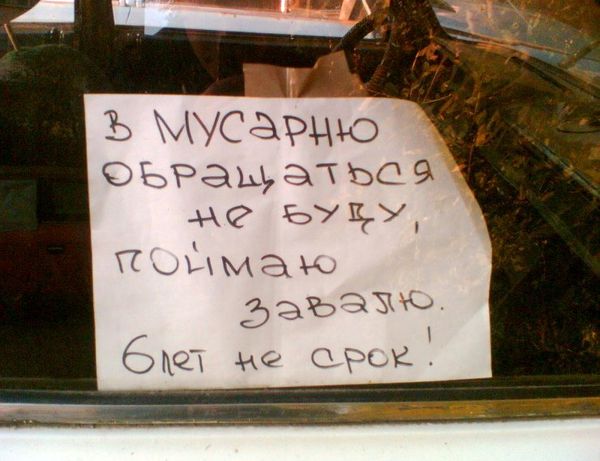 В МУСАРНЮ
ОБРАЩАТЬСЯ
не БУДУ,
ПОЙМАЮ
ЗАВАЛЮ.
6 лет не СРОК!